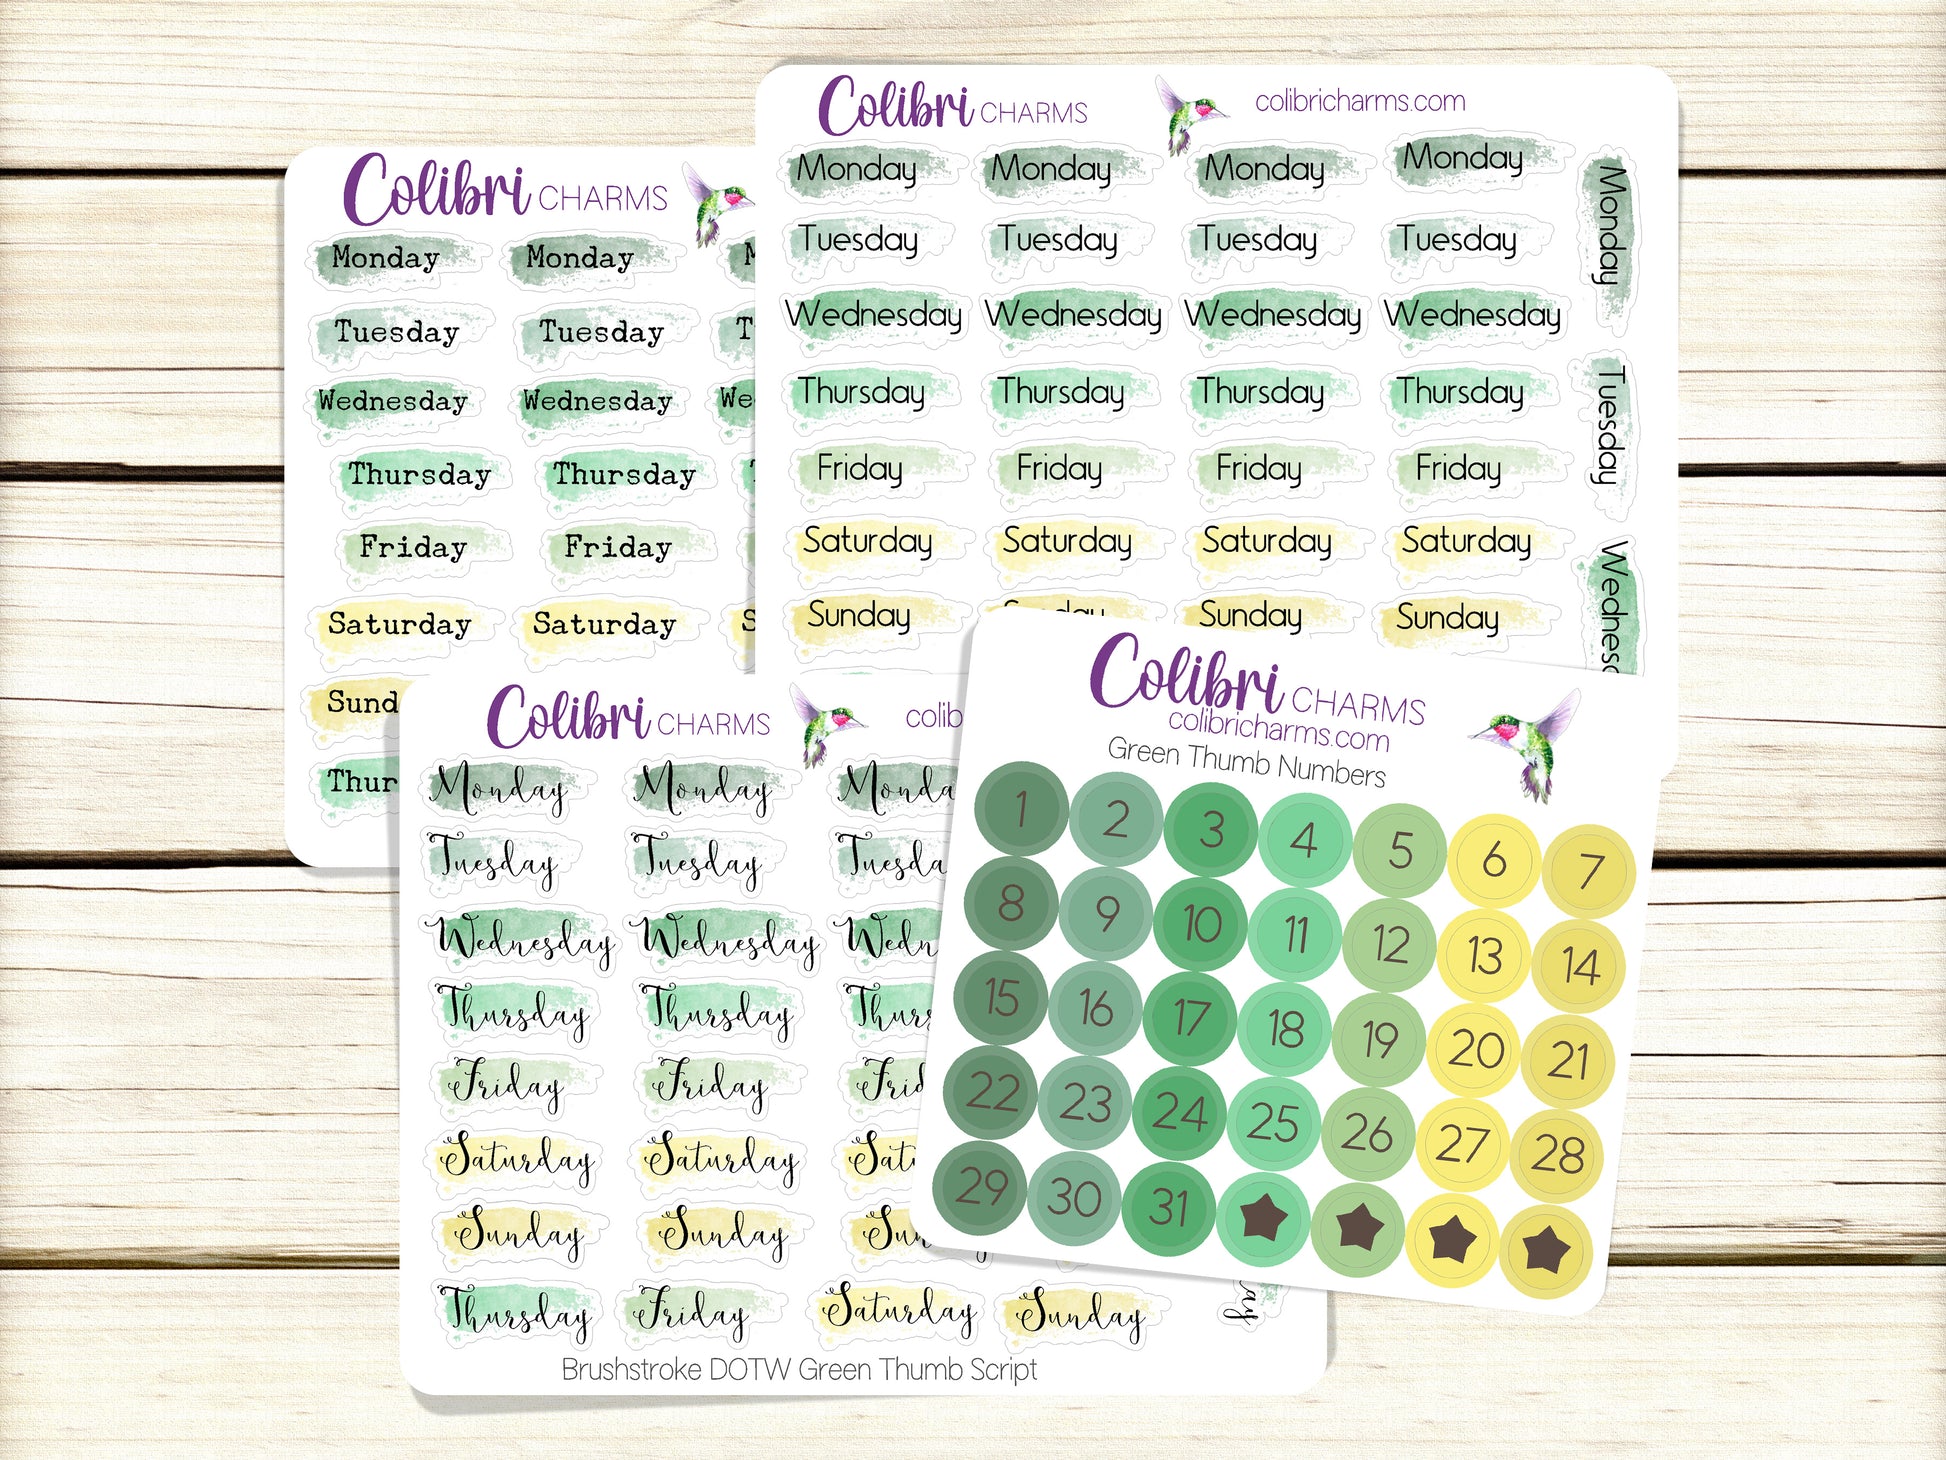 Colibri CHARMS
Monday Monday M
Tuesday Tuesday T
Wednesday Wednesday We
Thursday Thursday
Friday Friday
Saturday Saturday S
Sund
Thur
Colibri CHARMS colibricharms.com
Monday Monday Monday Monday Monday
Tuesday Tuesday Tuesday Tuesday Tuesday
Wednesday Wednesday Wednesday Wednesday Wednesd
Thursday Thursday Thursday Thursday
Friday Friday Friday Friday
Saturday Saturday Saturday Saturday
Sunday Sunday Sunday Sunday
Colibri CHARMS colib
Monday Monday Monda
Tuesday Tuesday Tuesda
Wednesday Wednesday Wedn
Thursday Thursday Thurs
Friday Friday Frid
Saturday Saturday Satu
Sunday Sunday Sun
Thursday Friday Saturday Sunday ay
Brushstroke DOTW Green Thumb Script
Colibri CHARMS
colibricharms.com
Green Thumb Numbers
1 2 3 4 5 6 7
8 9 10 11 12 13 14
15 16 17 18 19 20 21
22 23 24 25 26 27 28
29 30 31